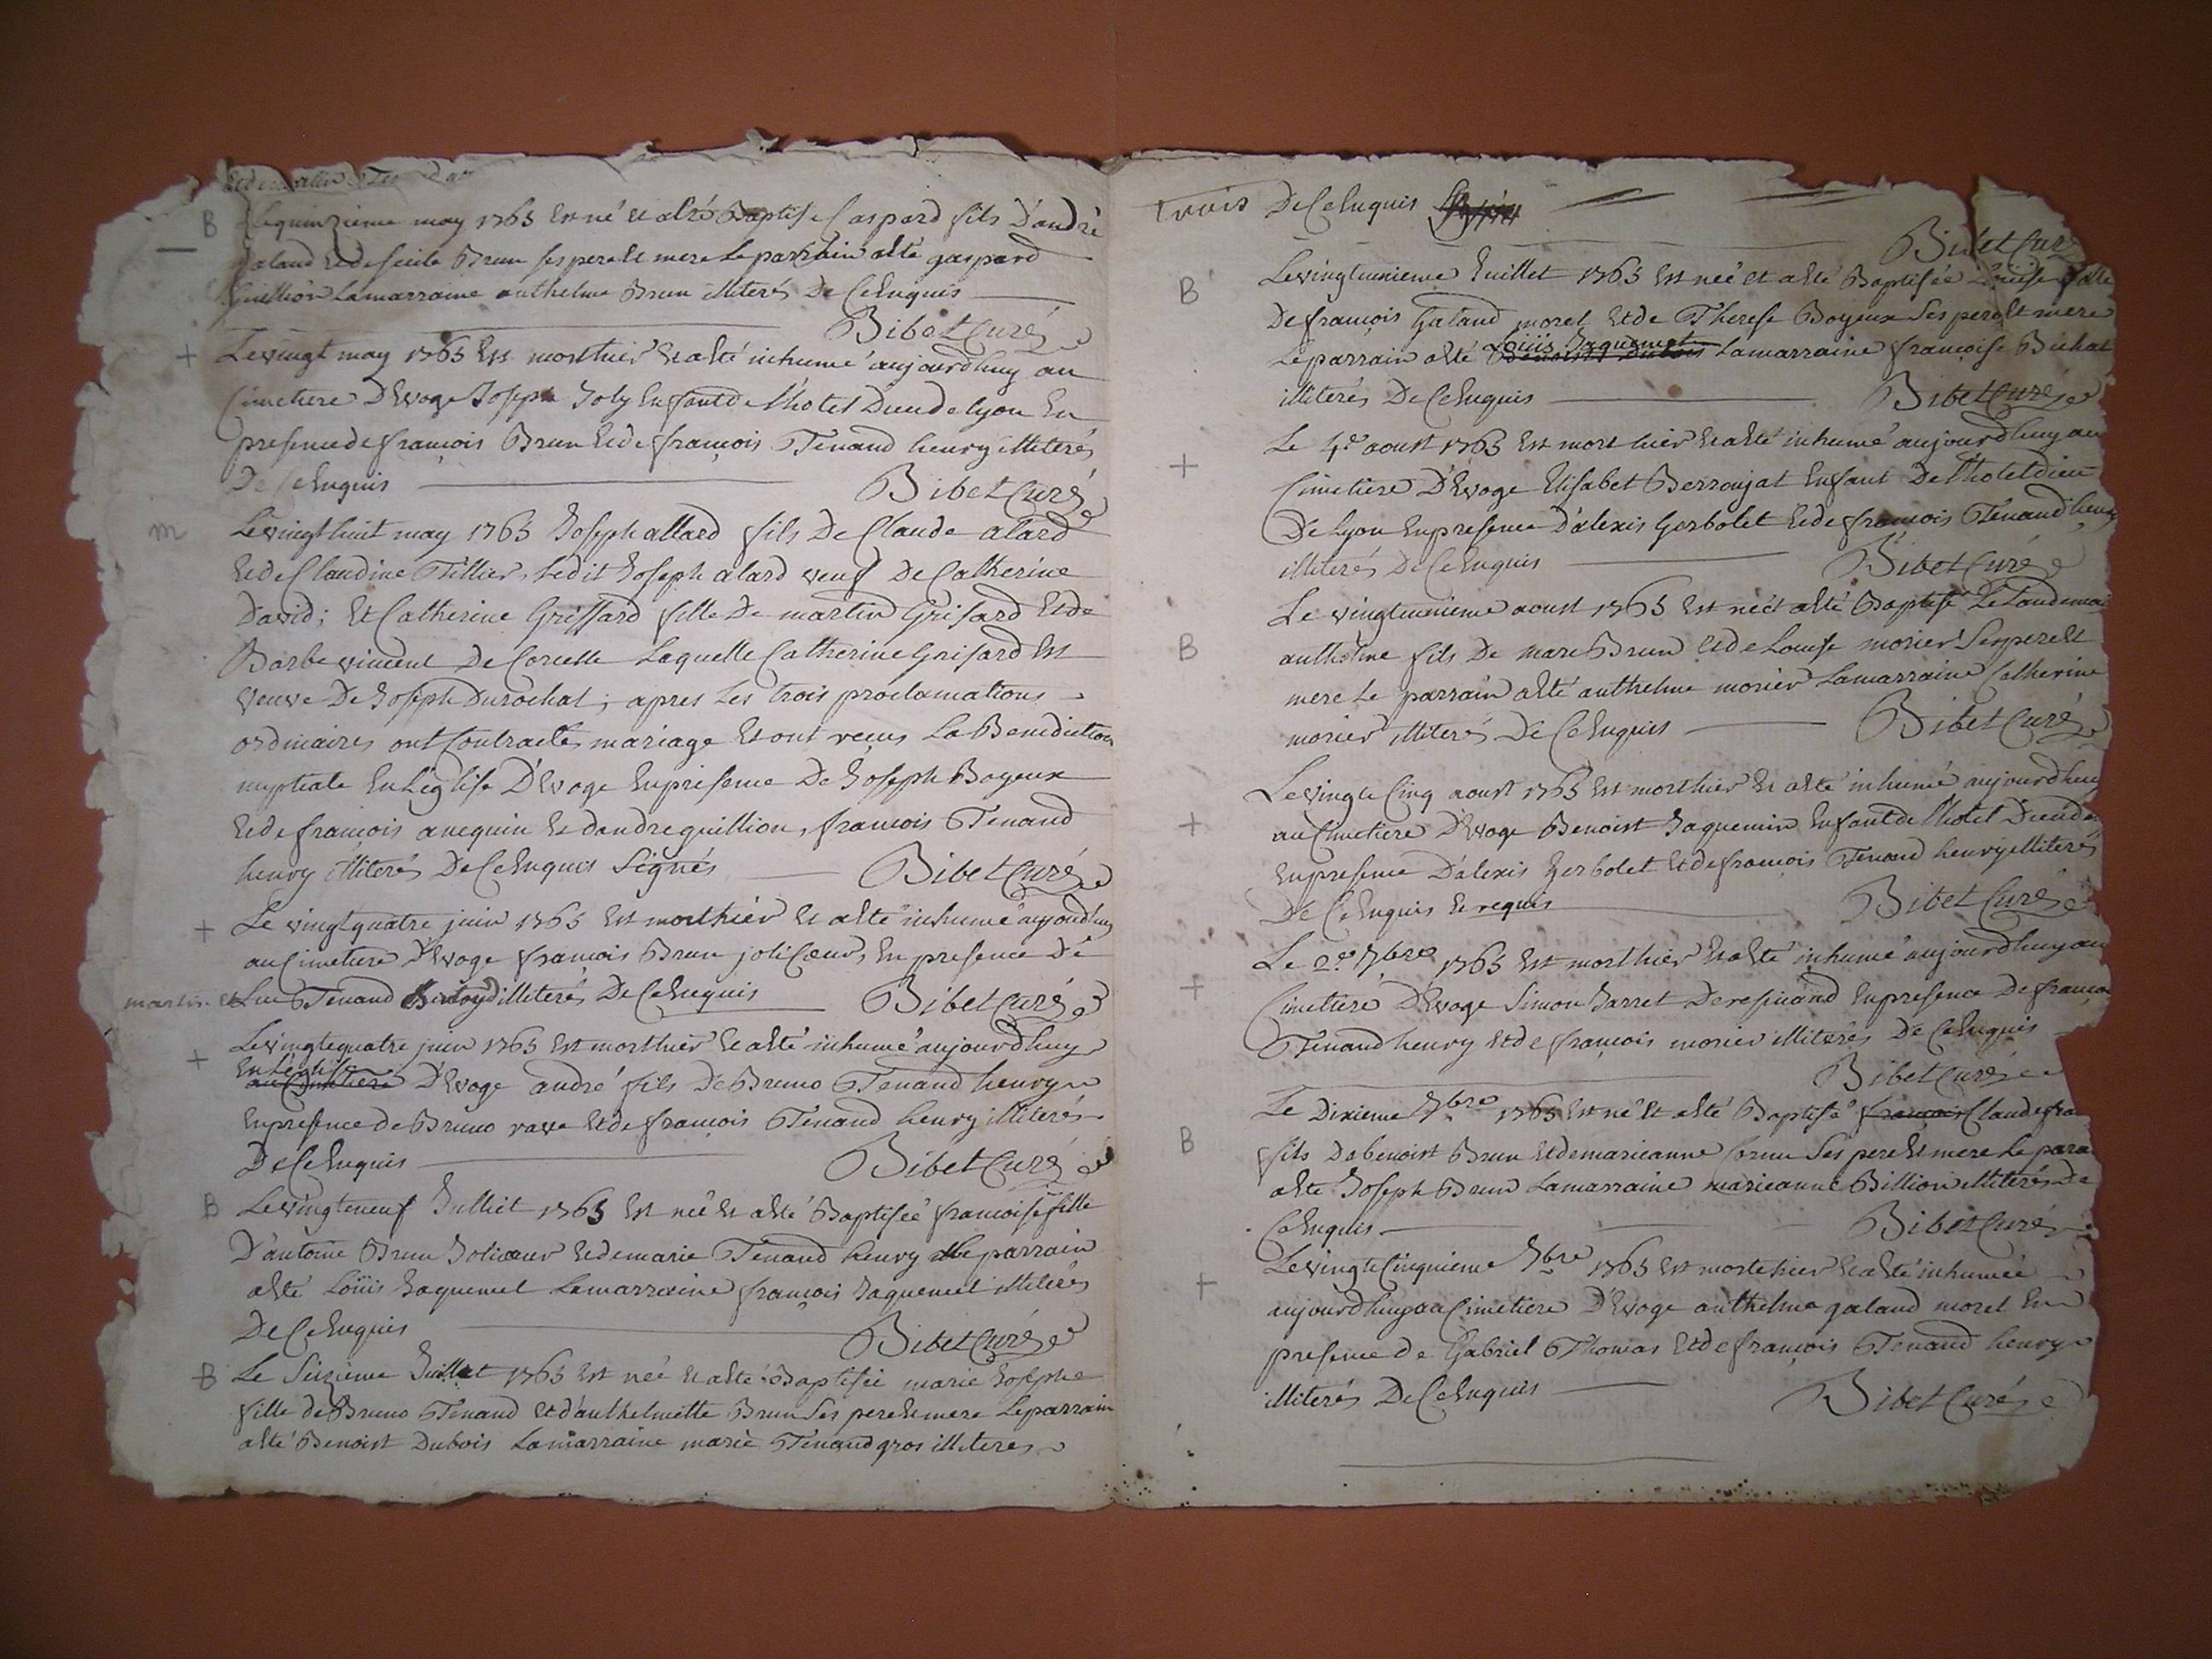 B Le quinzieme may 1763 Est né Et a Eté Baptisé Gaspard fils D'andré
galand Et de fecile Brun ses pere Et mere Le parrain a Eté gaspard
guillion La marraine anthelme Brun illiterés De Ce Enquis
Bibet Curé
+ Le vingt may 1763 Est mort hier Et a Eté inhumé aujourd'huy au
Cimetiere D'Evoge Joseph Joly Enfant de l'hotel Dieu de lyon En
presence de françois Brun Et de françois Tenand henry illiterés
De Ce Enquis
Bibet Curé
m Le vingt huit may 1763 Joseph allard fils De Claude alard
Et de Claudine Tillier, Ledit Joseph alard veuf De Catherine
David; Et Catherine Grissard fille De martin Grisard Et de
Barbe vincent De Corcelle Laquelle Catherine Grisard Est
veuve De Joseph Durochat; apres Les trois proclamations
ordinaires ont Contractés mariage Et ont reçus La Benediction
nuptiale En L'église D'Evoge En presence De Joseph Bogeux
Et de francois ancquin Et d'andre guillion, francois Tenand
henry illiterés De Ce Enquis Signés
Bibet Curé
+ Le vingt quatre juin 1763 Est mort hier Et a Eté inhumé aujourd'huy
au Cimetiere D'Evoge francois Brun joli Coeur, En presence De
martin Et Luc Tenand illiterés De Ce Enquis
Bibet Curé
+ Le vingt quatre juin 1763 Est mort hier Et a Eté inhumé aujourd'huy
En L'église
au Cimetiere D'Evoge andré fils De Bruno Tenand henry
En presence de Bruno rave Et de françois Tenand henry illiterés
De Ce Enquis
Bibet Curé
B Le vingt neuf Julliet 1763 Est née Et a Eté Baptisée francoise fille
D'antoine Brun Jolicoeur Et de marie Tenand henry Le parrain
a Eté Loüis Jaquemet La marraine françois Jaquemet illiterés
De Ce Enquis
Bibet Curé
B Le Seizieme Juillet 1763 Est née Et a Eté Baptisée marie Josephe
fille de Bruno Tenand Et d'anthelmette Brun Ses pere Et mere Le parrain
a Eté Benoist Dubois La marraine marie Tenand gros illiteres
trois De Ce Enquis
Bibet Curé
B Le vingt unieme Juillet 1763 Est née Et a Eté Baptisée Loüise fille
De françois Galand moret Et de Therese Bogeux Ses pere Et mere
Loüis Jaquemet
Le parrain a Eté Benoist Dubois La marraine françoise Bichat
illiterés De Ce Enquis
Bibet Curé
+ Le 4e aoust 1763 Est mort hier Et a Eté inhumé aujourd'huy au
Cimetiere D'Evoge Elisabet Berroujat Enfant De l'hotel dieu
De Lyon En presence D'alexis Gerbolet Et de francois Tenand henry
illiterés De Ce Enquis
Bibet Curé
B Le vingt unieme aoust 1763 Est né Et a Eté Baptisé Le Landemai
anthelme fils De marc Brun Et de Louise morier Ses pere Et
mere Le parrain a Eté anthelme morier La marraine Catherine
morier illiterés De Ce Enquis
Bibet Curé
+ Le vingt Cinq aoust 1763 Est mort hier Et a Eté inhumé aujourd'huy
au Cimetiere D'Evoge Benoist Jaquemin Enfant de l'hotel Dieu de
En presence D'alexis Gerbolet Et de françois Tenand henry illiterés
De Ce Enquis Et requis
Bibet Curé
+ Le 2e 7bre 1763 Est mort hier Et a Eté inhumé aujourd'huy au
Cimetiere D'Evoge Simon Jarret De resinand En presence De françois
Tenand henry Et de françois morier illiterés De Ce Enquis
Bibet Curé
B Le Dixieme 7bre 1763 Est né Et a Eté Baptisé francois Claude fra
fils De benoist Brun Et de marieanne Cornu Ses pere Et mere Le para
a Eté Joseph Brun La marraine marieanne Billion illiterés De
Ce Enquis
Bibet Curé
+ Le vingt Cinquieme 7bre 1763 Est morte hier Et a Eté inhumée
aujourd'huy au Cimetiere D'Evoge anthelme galand moret En
presence de Gabriel Thomas Et de françois Tenand henry
illiterés De Ce Enquis
Bibet Curé